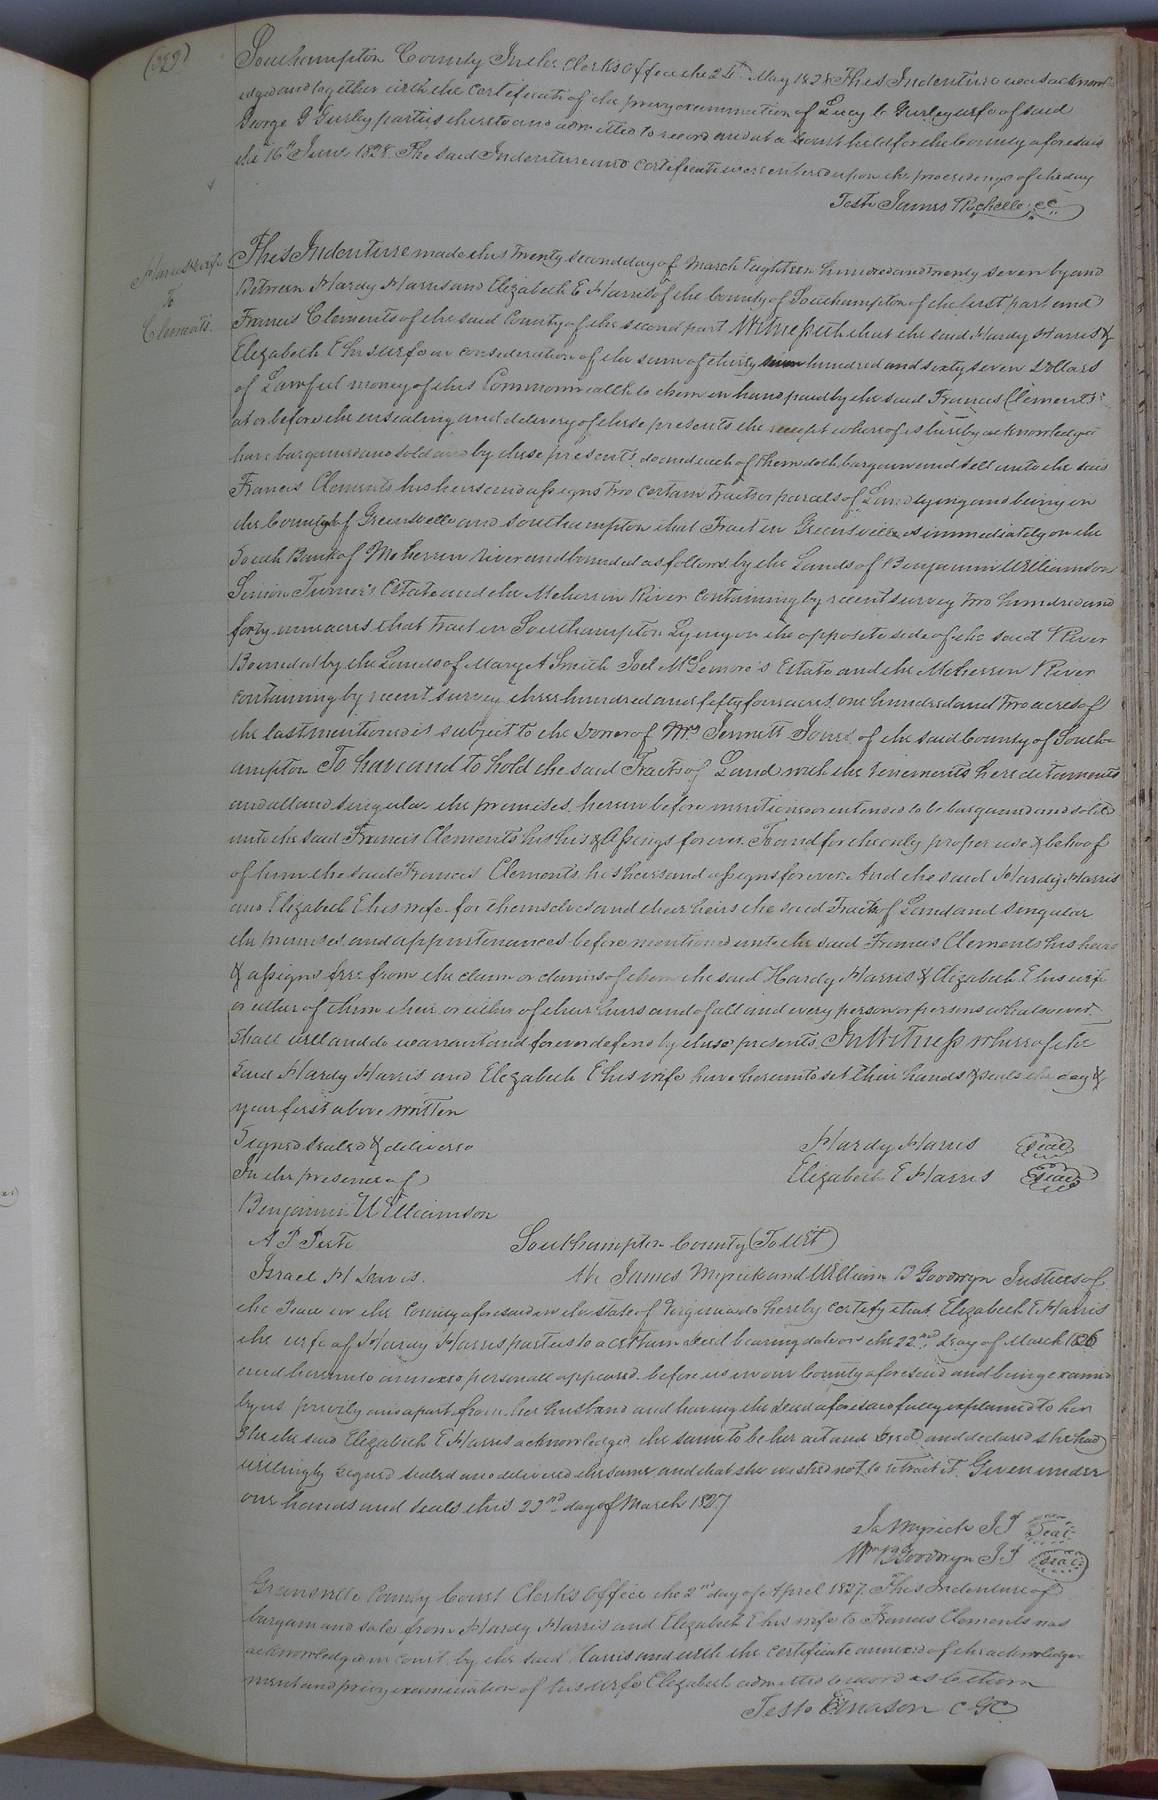 (329)
Southampton County In the Clerks Office the 24th May 1828 This Indenture was acknowl-
edged and together with the certificate of the privy examination of Lucy C Gurley wife of said
George G Gurley parties thereto and admitted to record and at a Court held for the County aforesaid
the 16th June 1828. The said Indenture and certificate were entered upon the proceedings of the day
Teste James Rochelle cc
Harris & wife
To
Clements.
This Indenture made this twenty second day of March Eighteen hundred and twenty seven by and
Between Hardy Harris and Elizabeth E Harris of the County of Southampton of the first part and
Francis Clements of the said County of the second part Witnesseth that the said Hardy Harris &
Elizabeth E his wife in consideration of the sum of thirty hundred and sixty seven Dollars
of Lawful money of this Commonwealth to them in hand paid by the said Francis Clements
at or before the ensealing and delivery of these presents the receipt whereof is hereby acknowledged
have bargained and sold and by these presents do and each of them doth bargain and sell unto the said
Francis Clements his heirs and assigns two certain Tracts or parcels of Land lying and being in
the County of Greensville and Southampton that Tract in Greensville is immediately on the
South Bank of Meherrin river and bounded as follows by the Lands of Benjamin Williamson
Senior Turner's Estate and the Meherrin River containing by recent survey two hundred and
forty nine acres that tract in Southampton Lying on the opposite side of the said River
Bounded by the Lands of Mary A Smith Joel McLemore's Estate and the Meherrin River
containing by recent survey three hundred and fifty four acres, one hundred and two acres of
the last mentioned is subject to the Dower of Mrs Jennett Jones of the said County of South-
ampton To have and to hold the said Tracts of Land with the tenements hereditaments
and all and singular the premises herein before mentioned or intended to be bargained and sold
unto the said Francis Clements his heirs & Assigns forever. To and for the only proper use & behoof
of him the said Francis Clements his heirs and assigns forever. And the said Hardy Harris
and Elizabeth E his wife for themselves and their heirs the said Tracts of Land and singular
the premises and appurtenances before mentioned unto the said Francis Clements his heirs
& assigns free from the claim or claims of them the said Hardy Harris & Elizabeth E his wife
or either of them their or either of their heirs and of all and every person or persons whatsoever
shall will and do warrant and forever defend by these presents. In Witness whereof the
said Hardy Harris and Elizabeth E his wife have hereunto set their hands & seals the day &
year first above written
Signed sealed & delivered
In the presence of
Hardy Harris (Seal)
Elizabeth E Harris (Seal)
Benjamin Williamson
A P Peete
Israel H Lewis.
Southampton County (To Wit)
We James Myrick and William B Goodwyn Justices of
the Peace in the County aforesaid in the state of Virginia do hereby certify that Elizabeth E Harris
the wife of Hardy Harris parties to a certain deed bearing date on the 22nd Day of March 1826
and hereunto annexed personall appeared before us in our County aforesaid and being examd
by us privily and apart from her husband and having the Deed aforesaid fully explained to her
She the said Elizabeth E Harris acknowledged the same to be her act and Deed and declared she had
willingly signed sealed and delivered the same and that she wished not to retract it. Given under
our hands and seals this 22nd day of March 1827
Ja Myrick JP (Seal)
Wm B Goodwyn JP (Seal)
Greensville County Court Clerk's Office the 2nd day of April 1827. This Indenture of
bargain and sale from Hardy Harris and Elizabeth E his wife to Francis Clements was
acknowledged in court by the said Harris and with the certificate annexed of the acknowledge-
ment and privy examination of his wife Elizabeth admitted to record as to them
Teste E Mason C G C